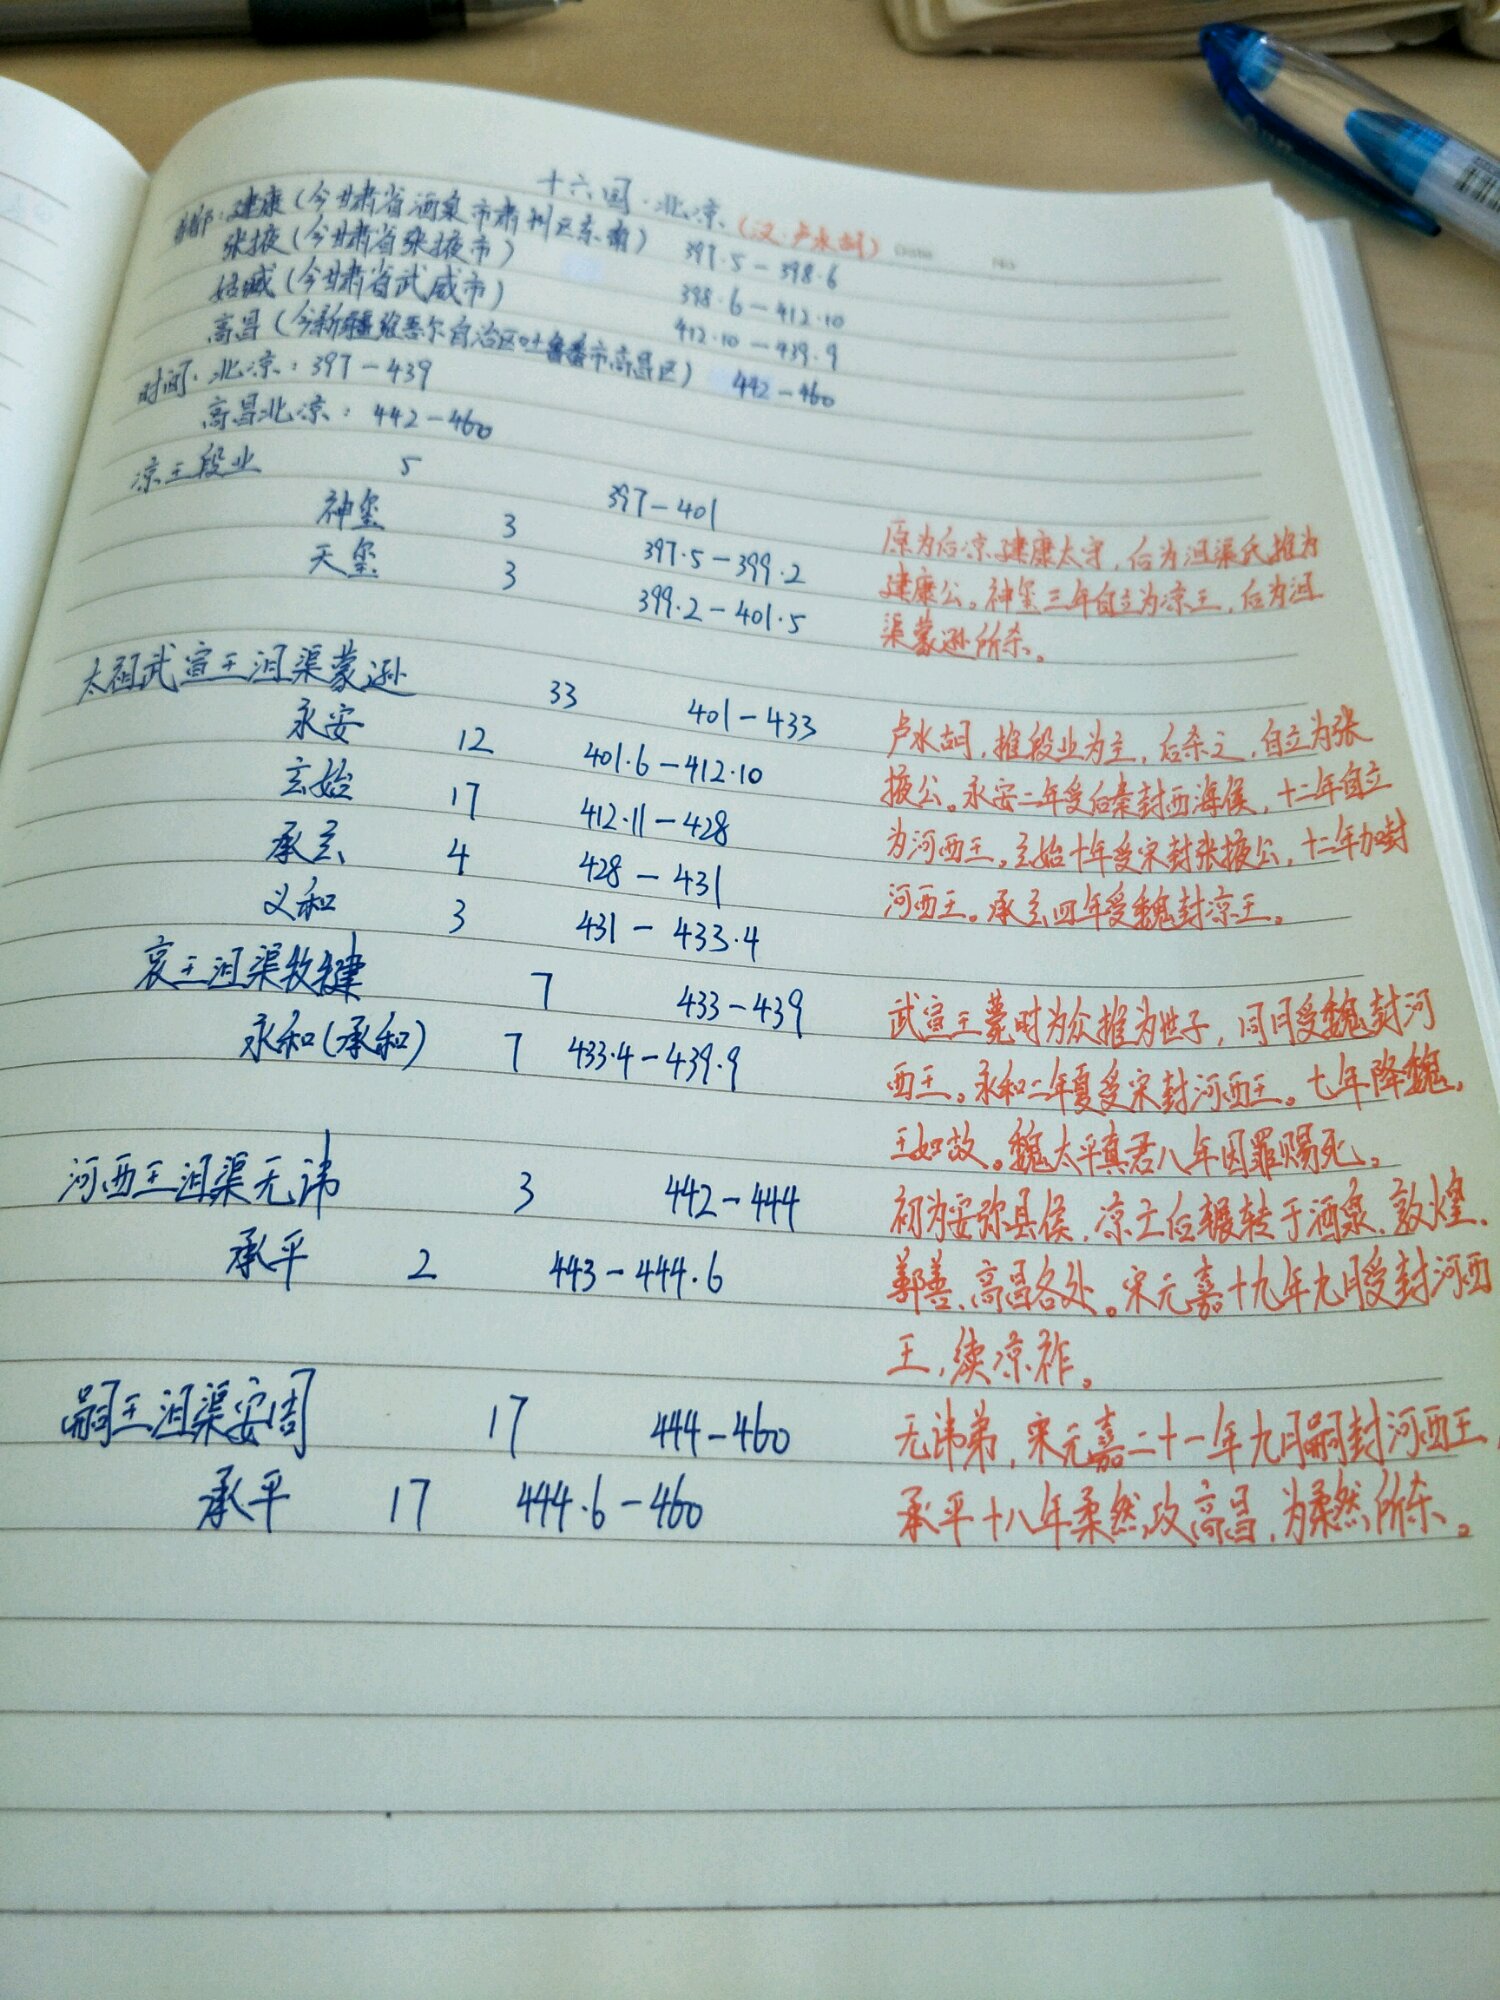 十六国·北凉(汉·卢水胡)
都:建康(今甘肃省酒泉市肃州区东南) 397.5-398.6
张掖(今甘肃省张掖市) 398.6-412.10
姑臧(今甘肃省武威市) 412.10-439.9
高昌(今新疆维吾尔自治区吐鲁番市高昌区) 442-460
时间:北凉:397-439
高昌北凉:442-460
凉王段业 5 397-401
神玺 3 397.5-399.2
天玺 3 399.2-401.5
原为后凉建康太守,后为沮渠氏推为
建康公。神玺三年自立为凉王,后为沮
渠蒙逊所杀。
太祖武宣王沮渠蒙逊 33 401-433
永安 12 401.6-412.10
玄始 17 412.11-428
承玄 4 428-431
义和 3 431-433.4
卢水胡,推段业为主,后杀之,自立为张
掖公。永安二年受后秦封西海侯,十二年自立
为河西王。玄始十年受宋封张掖公,十二年加封
河西王。承玄四年受魏封凉王。
哀王沮渠牧犍 7 433-439
永和(承和) 7 433.4-439.9
武宣王薨时为众推为世子,同月受魏封河
西王。永和二年夏受宋封河西王。七年降魏,
王如故。魏太平真君八年因罪赐死。
河西王沮渠无讳 3 442-444
承平 2 443-444.6
初为安弥县侯,凉亡后辗转于酒泉、敦煌、
鄯善、高昌各处。宋元嘉十九年九月受封河西
王,续凉祚。
嗣王沮渠安周 17 444-460
承平 17 444.6-460
无讳弟,宋元嘉二十一年九月嗣封河西王,
承平十八年柔然攻高昌,为柔然所杀。